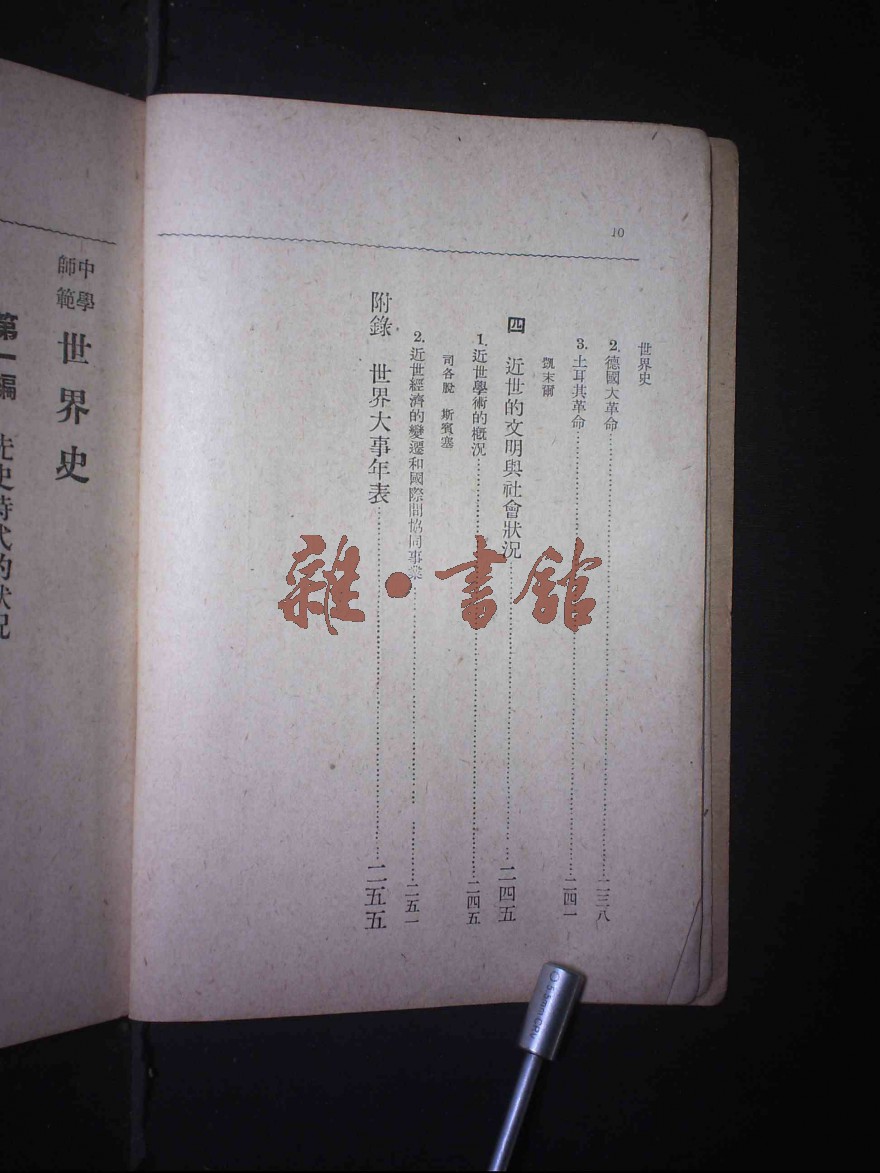 10
世界史
2. 德國大革命……二三八
3. 土耳其革命……二四一
凱末爾
四 近世的文明與社會狀況……二四五
1. 近世學術的概況……二四五
司各脫 斯賓塞
2. 近世經濟的變遷和國際間協同事業……二五一
附錄 世界大事年表……二五五
中學師範 世界史
第一編 先史時代的狀況
雜·書館
5.5mm CRV